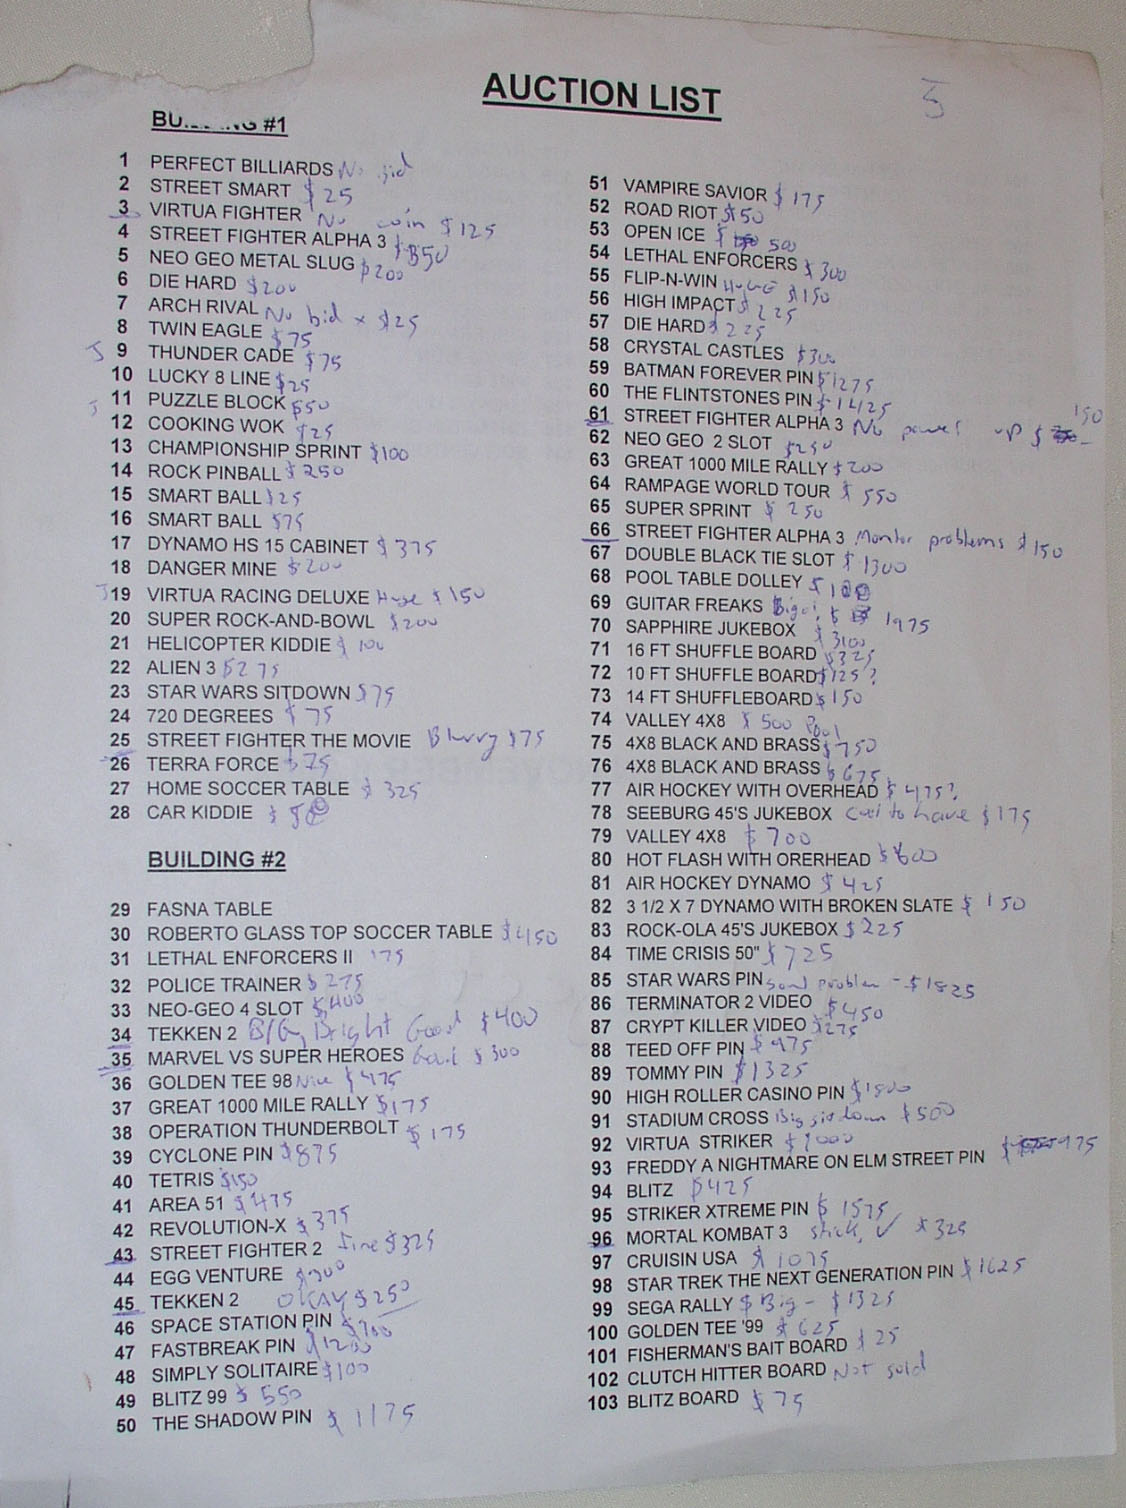 AUCTION LIST
5
BUILDING #1
1 PERFECT BILLIARDS No bid
2 STREET SMART $25
3 VIRTUA FIGHTER No coin $125
4 STREET FIGHTER ALPHA 3
5 NEO GEO METAL SLUG $200
6 DIE HARD $200
7 ARCH RIVAL No bid x $25
8 TWIN EAGLE $75
J 9 THUNDER CADE $75
10 LUCKY 8 LINE $25
J 11 PUZZLE BLOCK $50
12 COOKING WOK $25
13 CHAMPIONSHIP SPRINT $100
14 ROCK PINBALL $250
15 SMART BALL $25
16 SMART BALL $75
17 DYNAMO HS 15 CABINET $375
18 DANGER MINE $200
J 19 VIRTUA RACING DELUXE Huge $150
20 SUPER ROCK-AND-BOWL $200
21 HELICOPTER KIDDIE $100
22 ALIEN 3 $275
23 STAR WARS SITDOWN $75
24 720 DEGREES $75
25 STREET FIGHTER THE MOVIE Blurry $75
26 TERRA FORCE $75
27 HOME SOCCER TABLE $325
28 CAR KIDDIE $50
BUILDING #2
29 FASNA TABLE
30 ROBERTO GLASS TOP SOCCER TABLE $450
31 LETHAL ENFORCERS II 175
32 POLICE TRAINER $275
33 NEO-GEO 4 SLOT $400
34 TEKKEN 2 BIG, Bright Good $400
35 MARVEL VS SUPER HEROES Good $300
36 GOLDEN TEE 98 Nice $475
37 GREAT 1000 MILE RALLY $175
38 OPERATION THUNDERBOLT $175
39 CYCLONE PIN $875
40 TETRIS $150
41 AREA 51 $475
42 REVOLUTION-X $375
43 STREET FIGHTER 2 Fine $325
44 EGG VENTURE $300
45 TEKKEN 2 OKAY $250
46 SPACE STATION PIN $700
47 FASTBREAK PIN $1200
48 SIMPLY SOLITAIRE $100
49 BLITZ 99 $550
50 THE SHADOW PIN $1175
51 VAMPIRE SAVIOR $175
52 ROAD RIOT $50
53 OPEN ICE $ 500
54 LETHAL ENFORCERS $300
55 FLIP-N-WIN HUGE $150
56 HIGH IMPACT $225
57 DIE HARD $225
58 CRYSTAL CASTLES $300
59 BATMAN FOREVER PIN $1275
60 THE FLINTSTONES PIN $1425
61 STREET FIGHTER ALPHA 3 No power up $ 150
62 NEO GEO 2 SLOT $250
63 GREAT 1000 MILE RALLY $200
64 RAMPAGE WORLD TOUR $550
65 SUPER SPRINT $250
66 STREET FIGHTER ALPHA 3 Monitor problems $150
67 DOUBLE BLACK TIE SLOT $1300
68 POOL TABLE DOLLEY $100
69 GUITAR FREAKS Big! $ 1975
70 SAPPHIRE JUKEBOX $3100
71 16 FT SHUFFLE BOARD $325
72 10 FT SHUFFLE BOARD $125?
73 14 FT SHUFFLEBOARD $150
74 VALLEY 4X8 $500 Pool
75 4X8 BLACK AND BRASS $750
76 4X8 BLACK AND BRASS $675
77 AIR HOCKEY WITH OVERHEAD $475?
78 SEEBURG 45'S JUKEBOX cool to have $175
79 VALLEY 4X8 $700
80 HOT FLASH WITH ORERHEAD $600
81 AIR HOCKEY DYNAMO $425
82 3 1/2 X 7 DYNAMO WITH BROKEN SLATE $150
83 ROCK-OLA 45'S JUKEBOX $225
84 TIME CRISIS 50" $725
85 STAR WARS PIN sound problem - $1825
86 TERMINATOR 2 VIDEO $450
87 CRYPT KILLER VIDEO $275
88 TEED OFF PIN $975
89 TOMMY PIN $1325
90 HIGH ROLLER CASINO PIN $1800
91 STADIUM CROSS Big sitdown $500
92 VIRTUA STRIKER $1000
93 FREDDY A NIGHTMARE ON ELM STREET PIN $ 975
94 BLITZ $425
95 STRIKER XTREME PIN $1575
96 MORTAL KOMBAT 3 stick, $325
97 CRUISIN USA $1075
98 STAR TREK THE NEXT GENERATION PIN $1625
99 SEGA RALLY $ Big - $1325
100 GOLDEN TEE '99 $625
101 FISHERMAN'S BAIT BOARD $25
102 CLUTCH HITTER BOARD Not sold
103 BLITZ BOARD $75